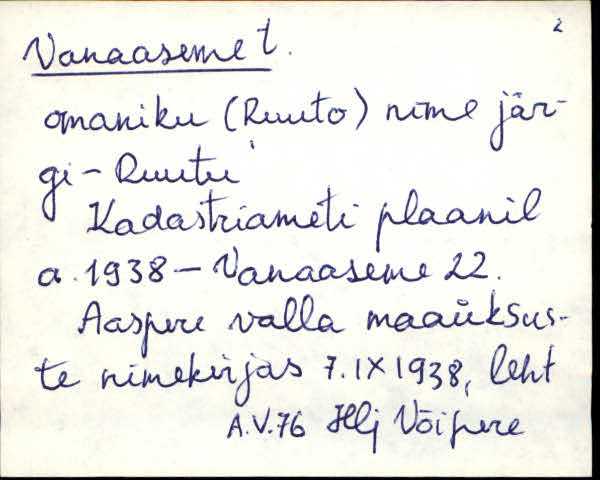 2
Vanaaseme t.
omaniku (Ruuto) nime jär-
gi - Ruutu
Kadastriameti plaanil
a. 1938 - Vanaaseme 22.
Aaspere valla maaüksus-
te nimekirjas 7. IX 1938, leht
A.V.76 Hlj Võipere